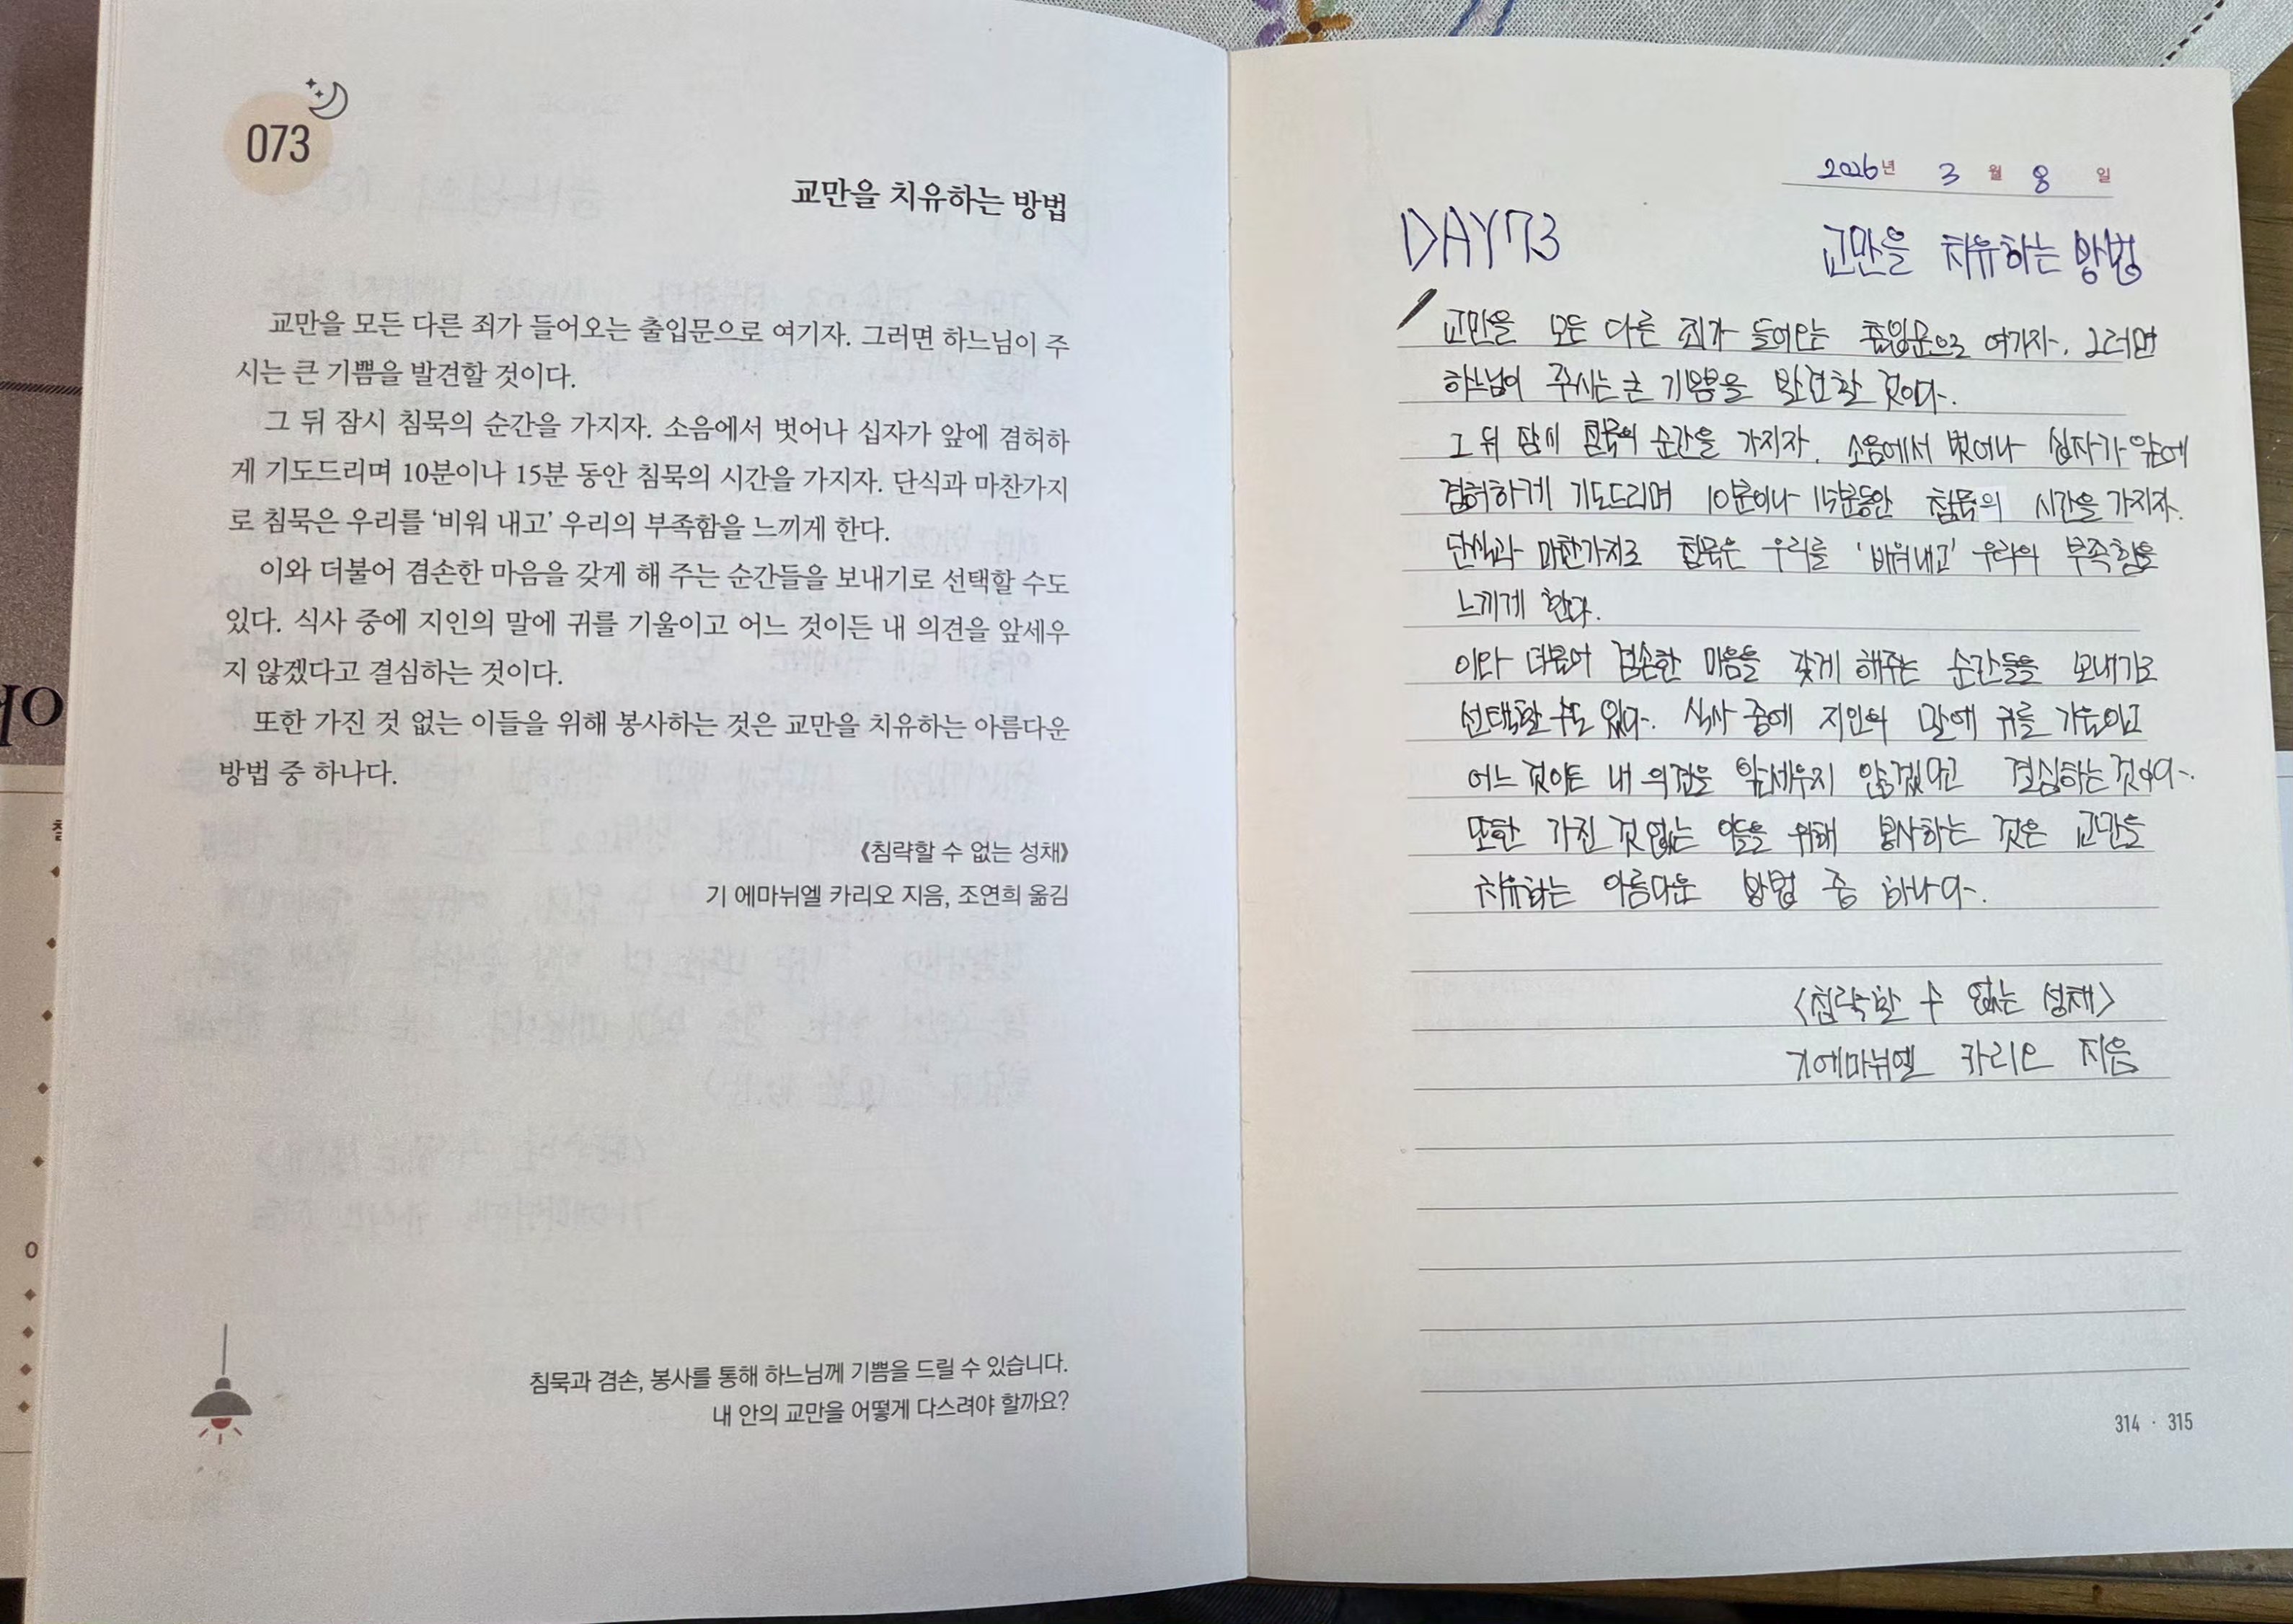 073
교만을 치유하는 방법
교만을 모든 다른 죄가 들어오는 출입문으로 여기자. 그러면 하느님이 주
시는 큰 기쁨을 발견할 것이다.
그 뒤 잠시 침묵의 순간을 가지자. 소음에서 벗어나 십자가 앞에 겸허하
게 기도드리며 10분이나 15분 동안 침묵의 시간을 가지자. 단식과 마찬가지
로 침묵은 우리를 ‘비워 내고’ 우리의 부족함을 느끼게 한다.
이와 더불어 겸손한 마음을 갖게 해 주는 순간들을 보내기로 선택할 수도
있다. 식사 중에 지인의 말에 귀를 기울이고 어느 것이든 내 의견을 앞세우
지 않겠다고 결심하는 것이다.
또한 가진 것 없는 이들을 위해 봉사하는 것은 교만을 치유하는 아름다운
방법 중 하나다.
《침략할 수 없는 성채》
기 에마뉘엘 카리오 지음, 조연희 옮김
침묵과 겸손, 봉사를 통해 하느님께 기쁨을 드릴 수 있습니다.
내 안의 교만을 어떻게 다스려야 할까요?
2026년 3월 8일
DAY73 교만을 치유하는 방법
교만을 모든 다른 죄가 들어오는 출입문으로 여기자. 그러면
하느님이 주시는 큰 기쁨을 발견할 것이다.
그 뒤 잠시 침묵의 순간을 가지자. 소음에서 벗어나 십자가 앞에
겸허하게 기도드리며 10분이나 15분동안 침묵의 시간을 가지자.
단식과 마찬가지로 침묵은 우리를 '비워내고' 우리의 부족함을
느끼게 한다.
이와 더불어 겸손한 마음을 갖게 해주는 순간들을 보내기로
선택할 수도 있다. 식사 중에 지인의 말에 귀를 기울이고
어느 것이든 내 의견을 앞세우지 않겠다고 결심하는 것이다.
또한 가진 것 없는 이들을 위해 봉사하는 것은 교만을
치유하는 아름다운 방법 중 하나다.
<침략할 수 없는 성채>
기에마뉘엘 카리오 지음
314 · 315